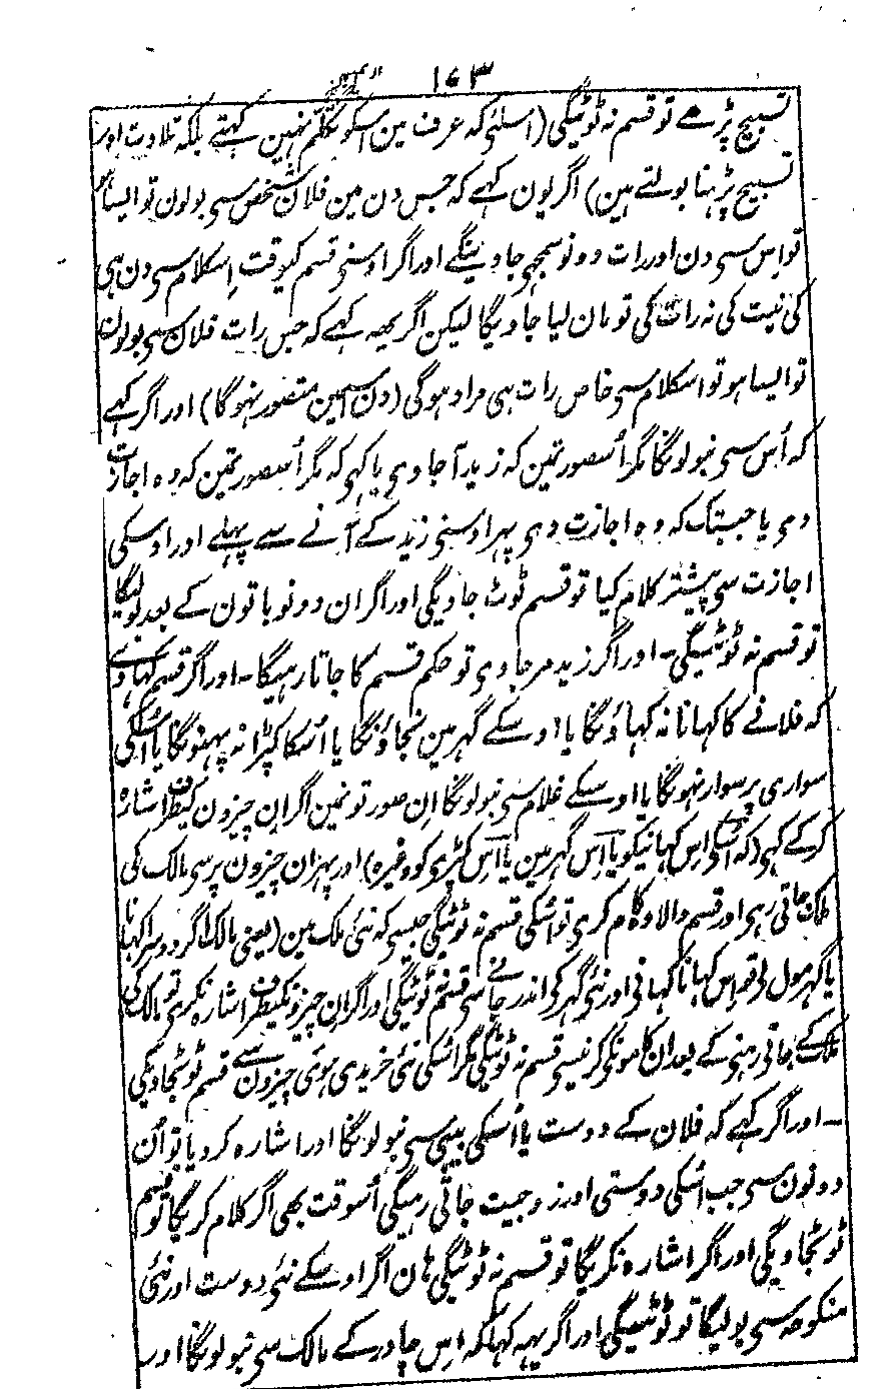 ۱۶۳
تسبیح پڑھے تو قسم نہ ٹوٹیگی (اسلئے کہ عرف مین اسکو تکلم نہین کہتے بلکہ تلاوت اور
تسبیح پڑہنا بولتے ہین) اگر یون کہے کہ جس دن مین فلان شخص سی بولون تو ایسا ہو
تو اس سی دن اور رات دونو سمجھی جاوینگے اور اگر اوسنی قسم کیوقت اسکلام سی دن ہی
کی نیت کی نہ رات کی تو مان لیا جاویگا لیکن اگر یہہ کہے کہ جس رات فلان سی بولون
تو ایسا ہو تو اسکلام سی خاص رات ہی مراد ہوگی (دن اسمین متصور نہوگا) اور اگر کہے
کہ اُس سی نبولونگا مگر اُسصورتمین کہ زید آجاوی یا کہی کہ مگر اُسصورتمین کہ وہ اجازت
دی یا جبتک کہ وہ اجازت دی پہر اوسنی زید کے آنے سے پہلے اور اوسکی
اجازت سی پیشتر کلام کیا تو قسم ٹوٹ جاویگی اور اگر ان دونو باتون کے بعد بولیگا
تو قسم نہ ٹوٹیگی ۔ اور اگر زید مرجاوی تو حکم قسم کا جاتا رہیگا ۔ اور اگر قسم کہاوے
کہ فلانے کا کہانا نہ کہاؤنگا یا اوسکے گہر مین نجاؤنگا یا اُسکا کپڑا نہ پہنونگا یا اُسکی
سواری پر سوار نہونگا یا اوسکے غلام سی نبولونگا ان صورتونمین اگر ان چیزون کیطرف اشارہ
کرکے کہی (کہ اُسکی اس کہانیکو یا اِس گہر مین یا اِس کپڑی کو وغیرہ) اور پہر ان چیزون پر سی مالک کی
ملک جاتی رہی اور قسم والا وہ کام کری تو اُسکی قسم نہ ٹوٹیگی جیسی کہ نئی ملک مین (یعنی مالک اگر دوسرا کہانا
یا گہر مول لی تو اس کہانا کہانی اور نئی گہر کی اندر جانے سی قسم نہ ٹوٹیگی اور اگر ان چیزونکیطرف اشارہ نکری تو مالک کی
ملک کے جاتی رہنی کے بعد ان کامونکی کرنیسی قسم نہ ٹوٹیگی مگر اُسکی نئی خریدی ہوئی چیزون سے قسم ٹوٹجاویگی
۔ اور اگر کہے کہ فلان کے دوست یا اُسکی بیبی سی نبولونگا اور اشارہ کردیا تو اُن
دونون سی جب اُسکی دوستی اور زوجیت جاتی رہیگی اُسوقت بھی اگر کلام کریگا تو قسم
ٹوٹجاویگی اور اگر اشارہ نکریگا تو قسم نہ ٹوٹیگی ہان اگر اوسکے نئی دوست اور نئی
منکوحہ سی بولیگا تو ٹوٹیگی اور اگر یہہ کہا کہ اِس چادر کے مالک سی نبولونگا اور